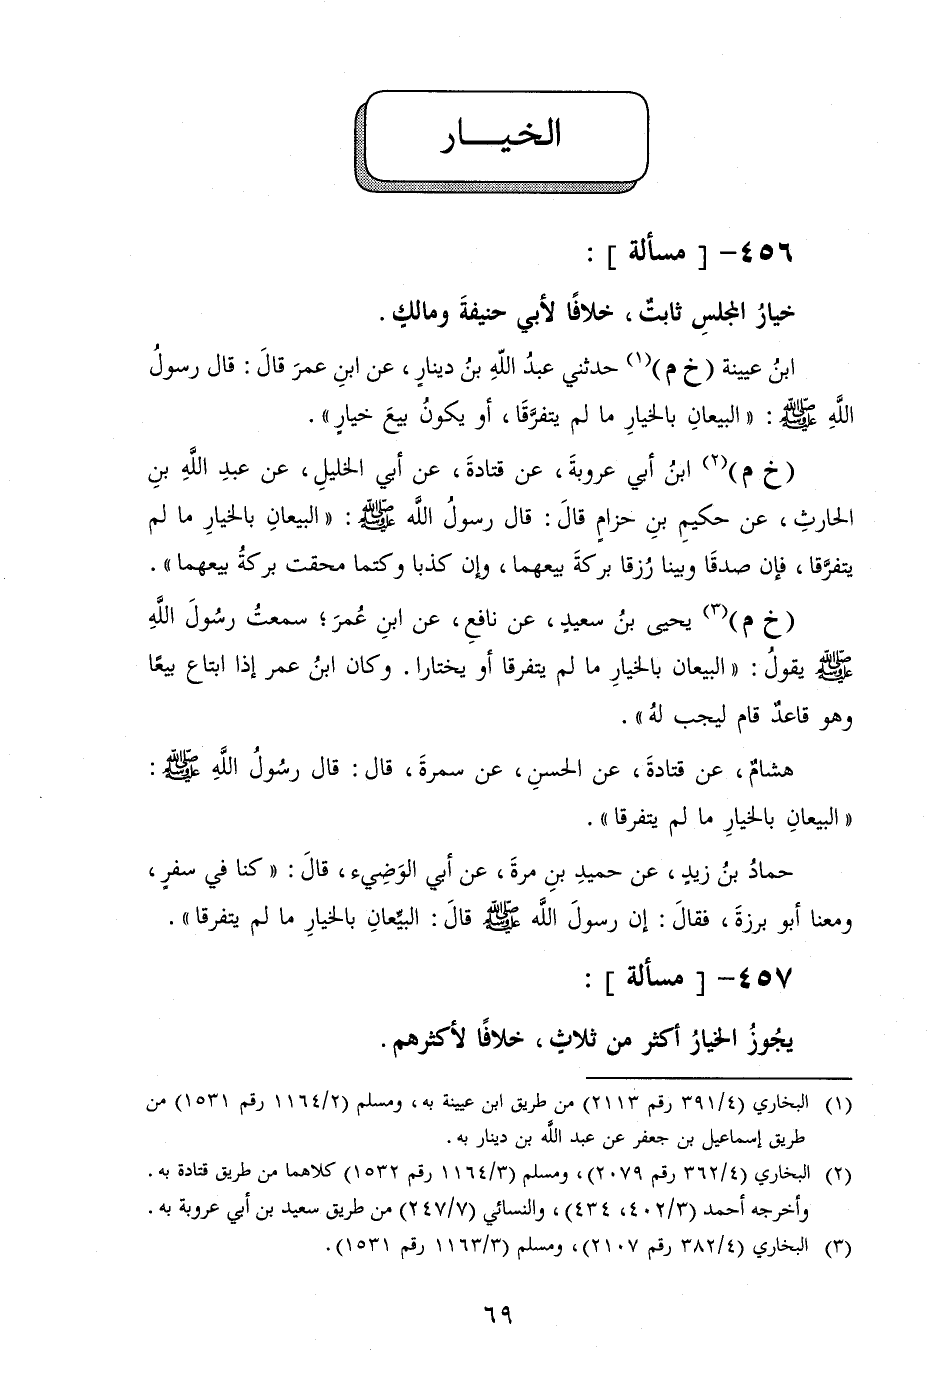 الخيـــار
٤٥٦- [ مسألة ] :
خيارُ المجلسِ ثابتٌ ، خلافًا لأبي حنيفةَ ومالكٍ .
ابنُ عيينة (خ م)(١) حدثني عبدُ اللَّهِ بنُ دينارٍ ، عن ابنِ عمرَ قالَ : قال رسولُ
اللَّهِ ﷺ : « البيعانِ بالخيارِ ما لم يتفرَّقَا ، أو يكونُ بيعَ خيارٍ » .
(خ م)(٢) ابنُ أبي عروبةَ ، عن قتادةَ ، عن أبي الخليلِ ، عن عبدِ اللَّهِ بنِ
الحارثِ ، عن حكيمِ بنِ حزامٍ قالَ : قال رسولُ اللَّه ﷺ : « البيعانِ بالخيارِ ما لم
يتفرَّقا ، فإن صدقَا وبينا رُزقا بركةَ بيعهما ، وإن كذبا وكتما محقت بركةُ بيعهما » .
(خ م)(٣) يحيى بنُ سعيدٍ ، عن نافعٍ ، عن ابنِ عُمرَ ؛ سمعتُ رسُولَ اللَّهِ
ﷺ يقولُ : « البيعان بالخيارِ ما لم يتفرقا أو يختارا . وكان ابنُ عمر إذا ابتاع بيعًا
وهو قاعدٌ قام ليجب لهُ » .
هشامٌ ، عن قتادةَ ، عن الحسنِ ، عن سمرةَ ، قال : قال رسُولُ اللَّهِ ﷺ :
« البيعانِ بالخيارِ ما لم يتفرقا » .
حمادُ بنُ زيدٍ ، عن حميدِ بنِ مرةَ ، عن أبي الوَضِيء ، قالَ : « كنا في سفرٍ ،
ومعنا أبو برزةَ ، فقالَ : إن رسولَ اللَّه ﷺ قالَ : البيِّعانِ بالخيارِ ما لم يتفرقا » .
٤٥٧- [ مسألة ] :
يجُوزُ الخيارُ أكثر من ثلاثٍ ، خلافًا لأكثرهم .
(١) البخاري (٣٩١/٤ رقم ٢١١٣) من طريق ابن عيينة به ، ومسلم (١١٦٤/٢ رقم ١٥٣١) من
طريق إسماعيل بن جعفر عن عبد اللَّه بن دينار به .
(٢) البخاري (٣٦٢/٤ رقم ٢٠٧٩) ، ومسلم (١١٦٤/٣ رقم ١٥٣٢) كلاهما من طريق قتادة به .
وأخرجه أحمد (٤٠٢/٣ ، ٤٣٤) ، والنسائي (٢٤٧/٧) من طريق سعيد بن أبي عروبة به .
(٣) البخاري (٣٨٢/٤ رقم ٢١٠٧) ، ومسلم (١١٦٣/٣ رقم ١٥٣١) .
٦٩